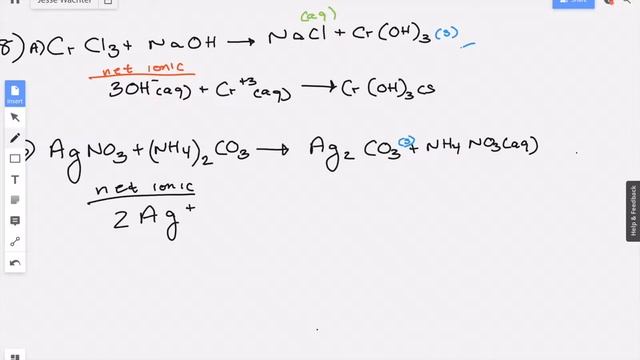 Jesse Wachter
(aq)
8) A) Cr Cl3 + NaOH → NaCl + Cr(OH)3 (s)
net ionic
3OH⁻(aq) + Cr⁺³(aq) → Cr(OH)3 (s)
Insert
AgNO3 + (NH4)2CO3 → Ag2CO3 (s) + NH4NO3(aq)
net ionic
2Ag⁺
Help & Feedback